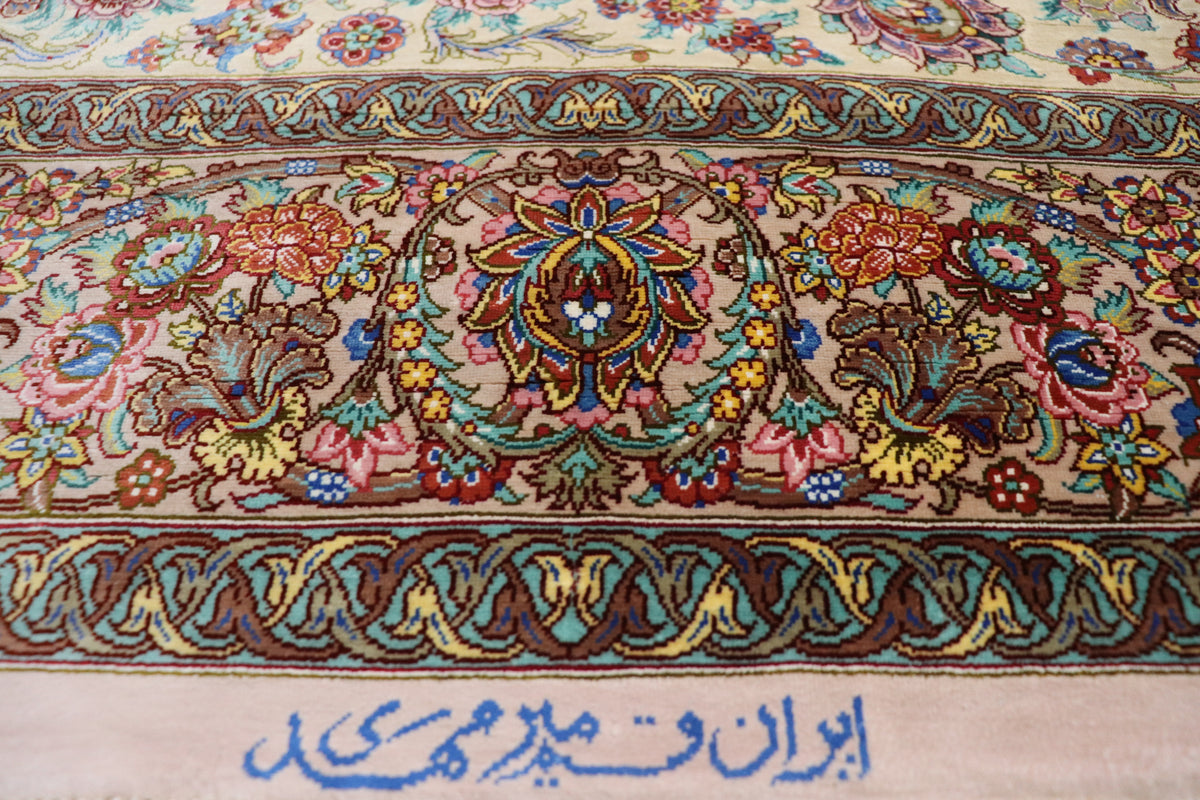 ایران قم میرمهدی